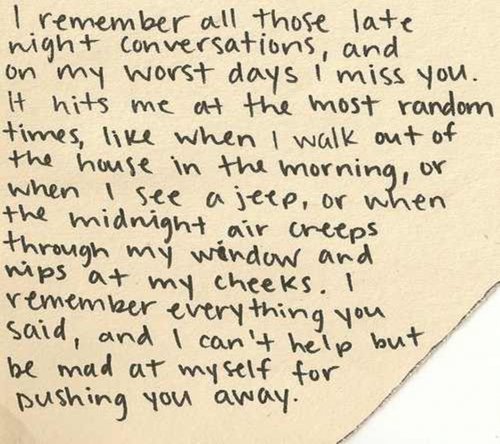 I remember all those late
night conversations, and
on my worst days I miss you.
It hits me at the most random
times, like when I walk out of
the house in the morning, or
when I see a jeep, or when
the midnight air creeps
through my window and
nips at my cheeks. I
remember everything you
said, and I can't help but
be mad at myself for
pushing you away.